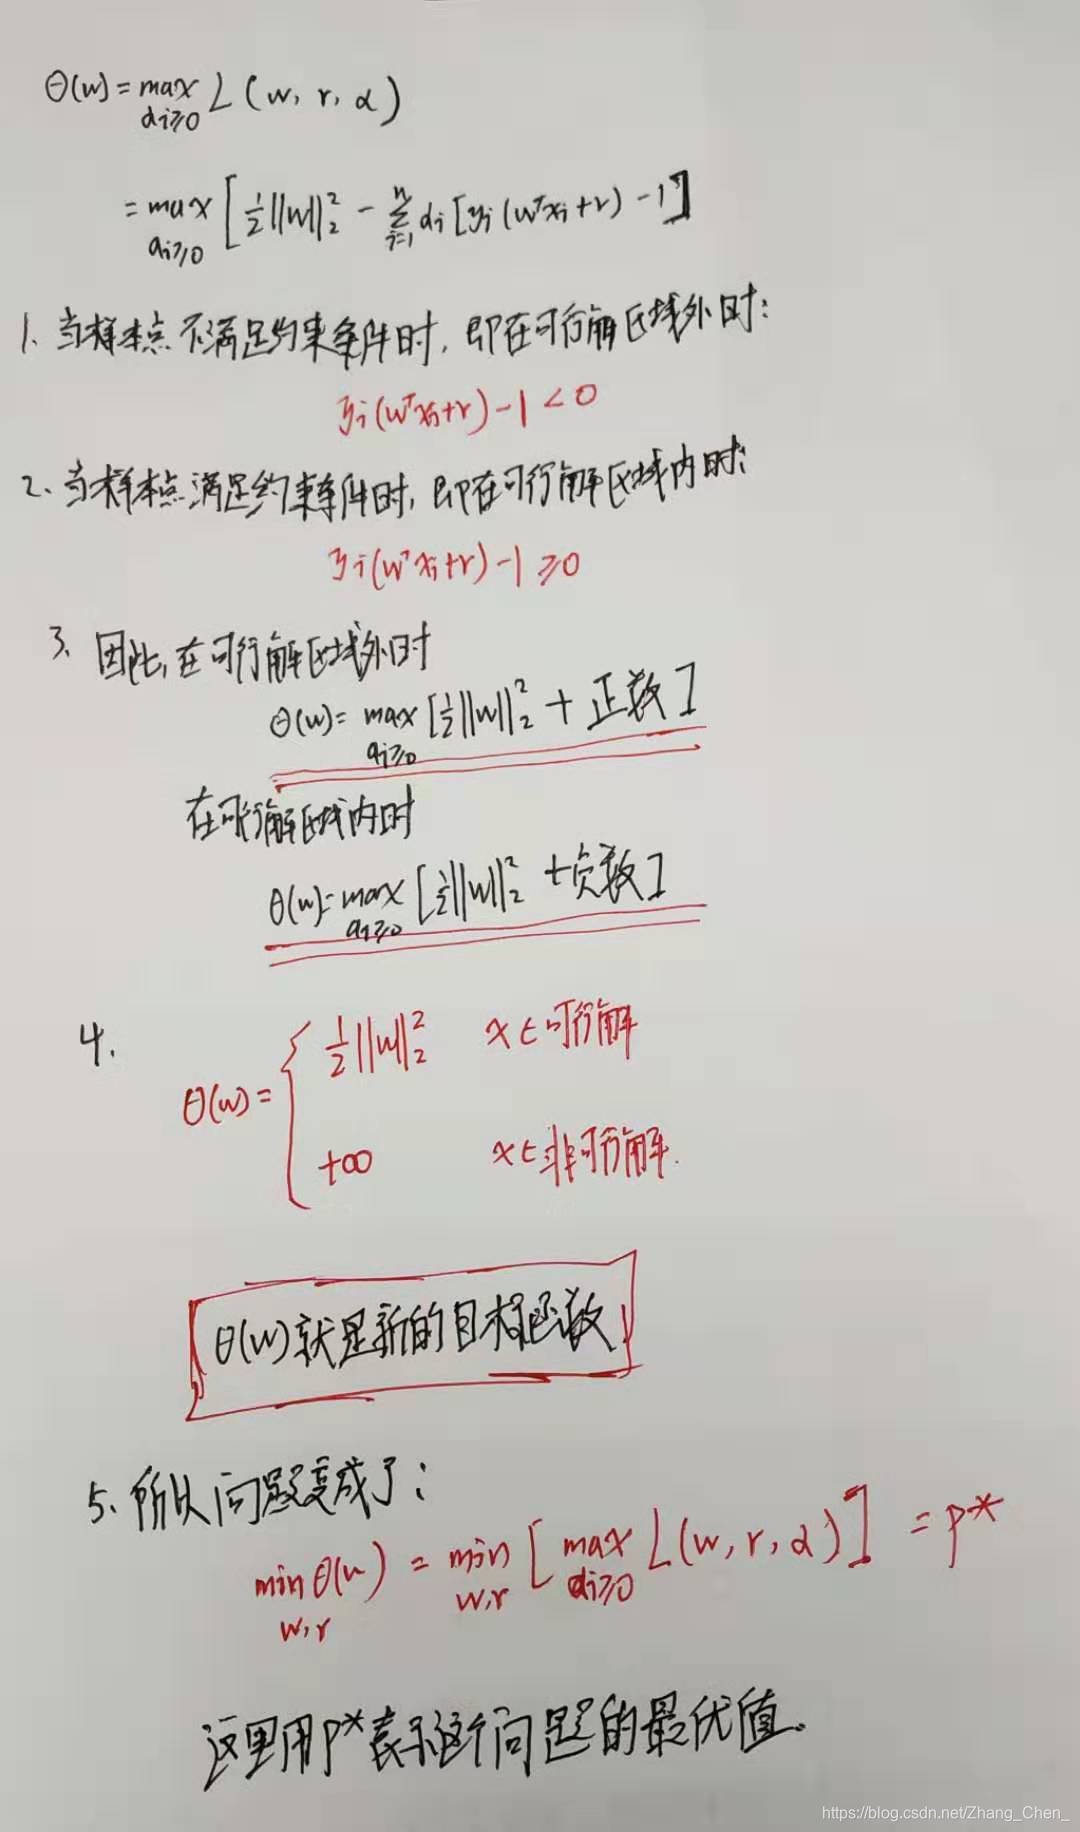 θ(w) = max L(w, r, α)
αi≥0
= max [ ½||w||₂² - Σ αi [yi(wᵀxi+r) - 1] ]
αi≥0 i=1 n
1. 当样本点不满足约束条件时, 即在可行解区域外时:
yi(wᵀxi+r) - 1 < 0
2. 当样本点满足约束条件时, 即在可行解区域内时:
yi(wᵀxi+r) - 1 ≥ 0
3. 因此, 在可行解区域外时
θ(w) = max [ ½||w||₂² + 正数 ]
αi≥0
在可行解区域内时
θ(w) = max [ ½||w||₂² + 负数 ]
αi≥0
4.
θ(w) = { ½||w||₂² x∈可行解
+∞ x∈非可行解.
θ(w)就是新的目标函数
5. 所以问题变成了:
min θ(w) = min [ max L(w, r, α) ] = p*
w,r w,r αi≥0
这里用p*表示这个问题的最优值。
https://blog.csdn.net/Zhang_Chen_